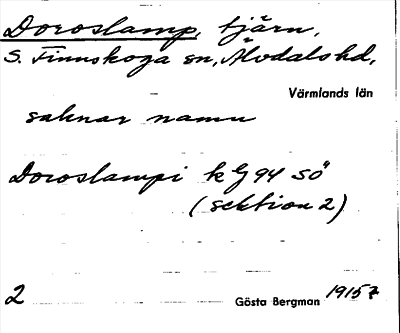 Doroslamp, tjärn,
S. Finnskoga sn, Älvdals hd,
Värmlands län
saknar namn
Doroslampi kg 94 SÖ
(sektion 2)
2 Gösta Bergman 1915